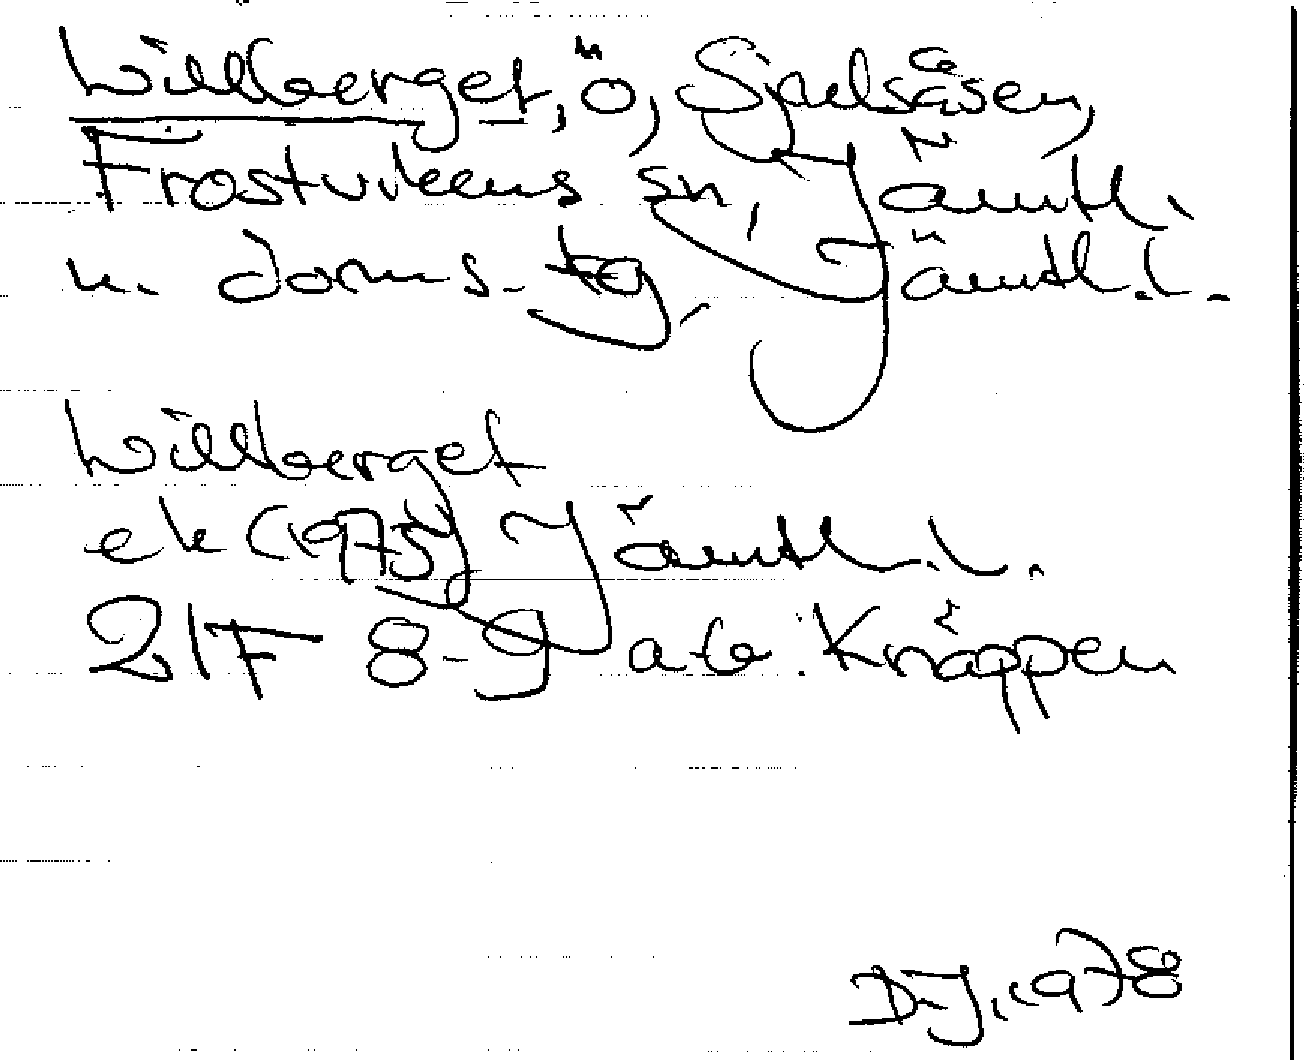 Willberget, ö, Spelsåsen,
Frostvikens sn, Jämtl.
n. doms. tg, Jämtl.l.
Willberget
ek (1975) Jämtl.l.
21F 8-9 a-b : Knäppen
D-J, 1978